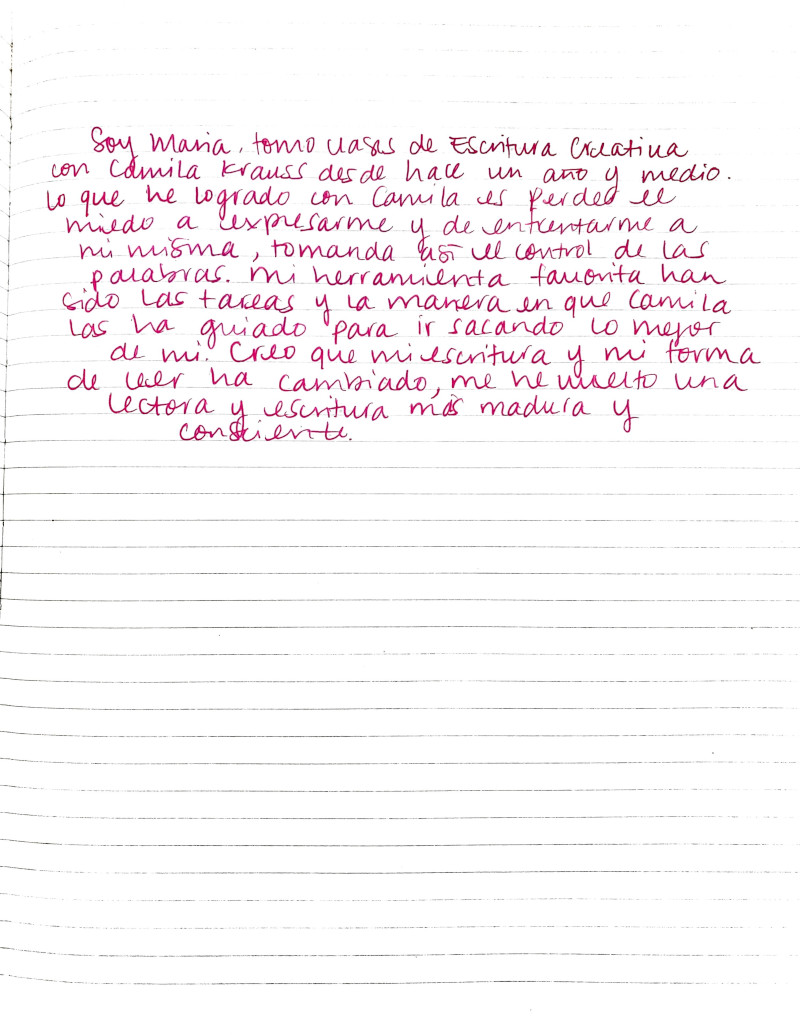 Soy Maria, tomo clases de Escritura Creativa
con Camila Krauss desde hace un año y medio.
Lo que he logrado con Camila es perded el
miedo a expresarme y de enfrentarme a
mi misma, tomanda así el control de las
palabras. Mi herramienta favorita han
sido las tareas y la manera en que Camila
las ha guiado para ir sacando lo mejor
de mi. Creo que mi escritura y mi forma
de leer ha cambiado, me he vuelto una
lectora y escritura más madura y
consciente.